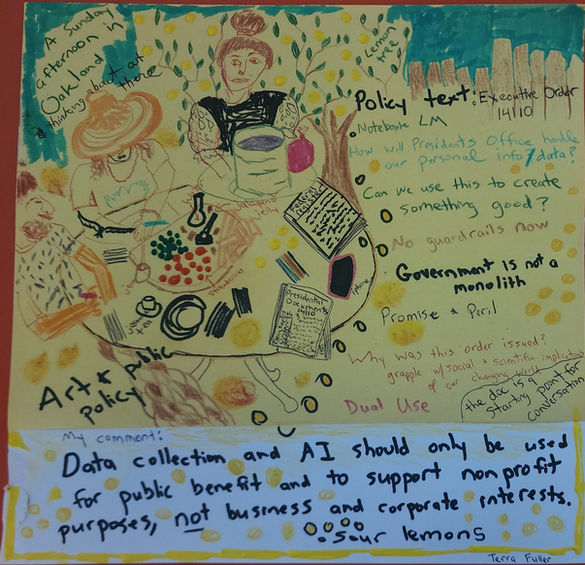 A Sunday
afternoon in
Oakland
thinking about out
there
Lemon
tree
Policy text: Executive Order
14110
Notebook LM
How will Presidents Office handle
our personal info/data?
Can we use this to create
something good?
No guardrails now
Government is not a
monolith
Promise & Peril
Why was this order issued?
grapple w/social & scientific implications
of our changing world
the doc is a
starting point for
conversation
Dual Use
jalapeno
jelly
Federal
Register
iphone
Presidential
Documents
14110
strawberries
tea
Art & public
policy
My comment:
Data collection and AI should only be used
for public benefit and to support nonprofit
purposes, not business and corporate interests.
sour lemons
Terra Fuller